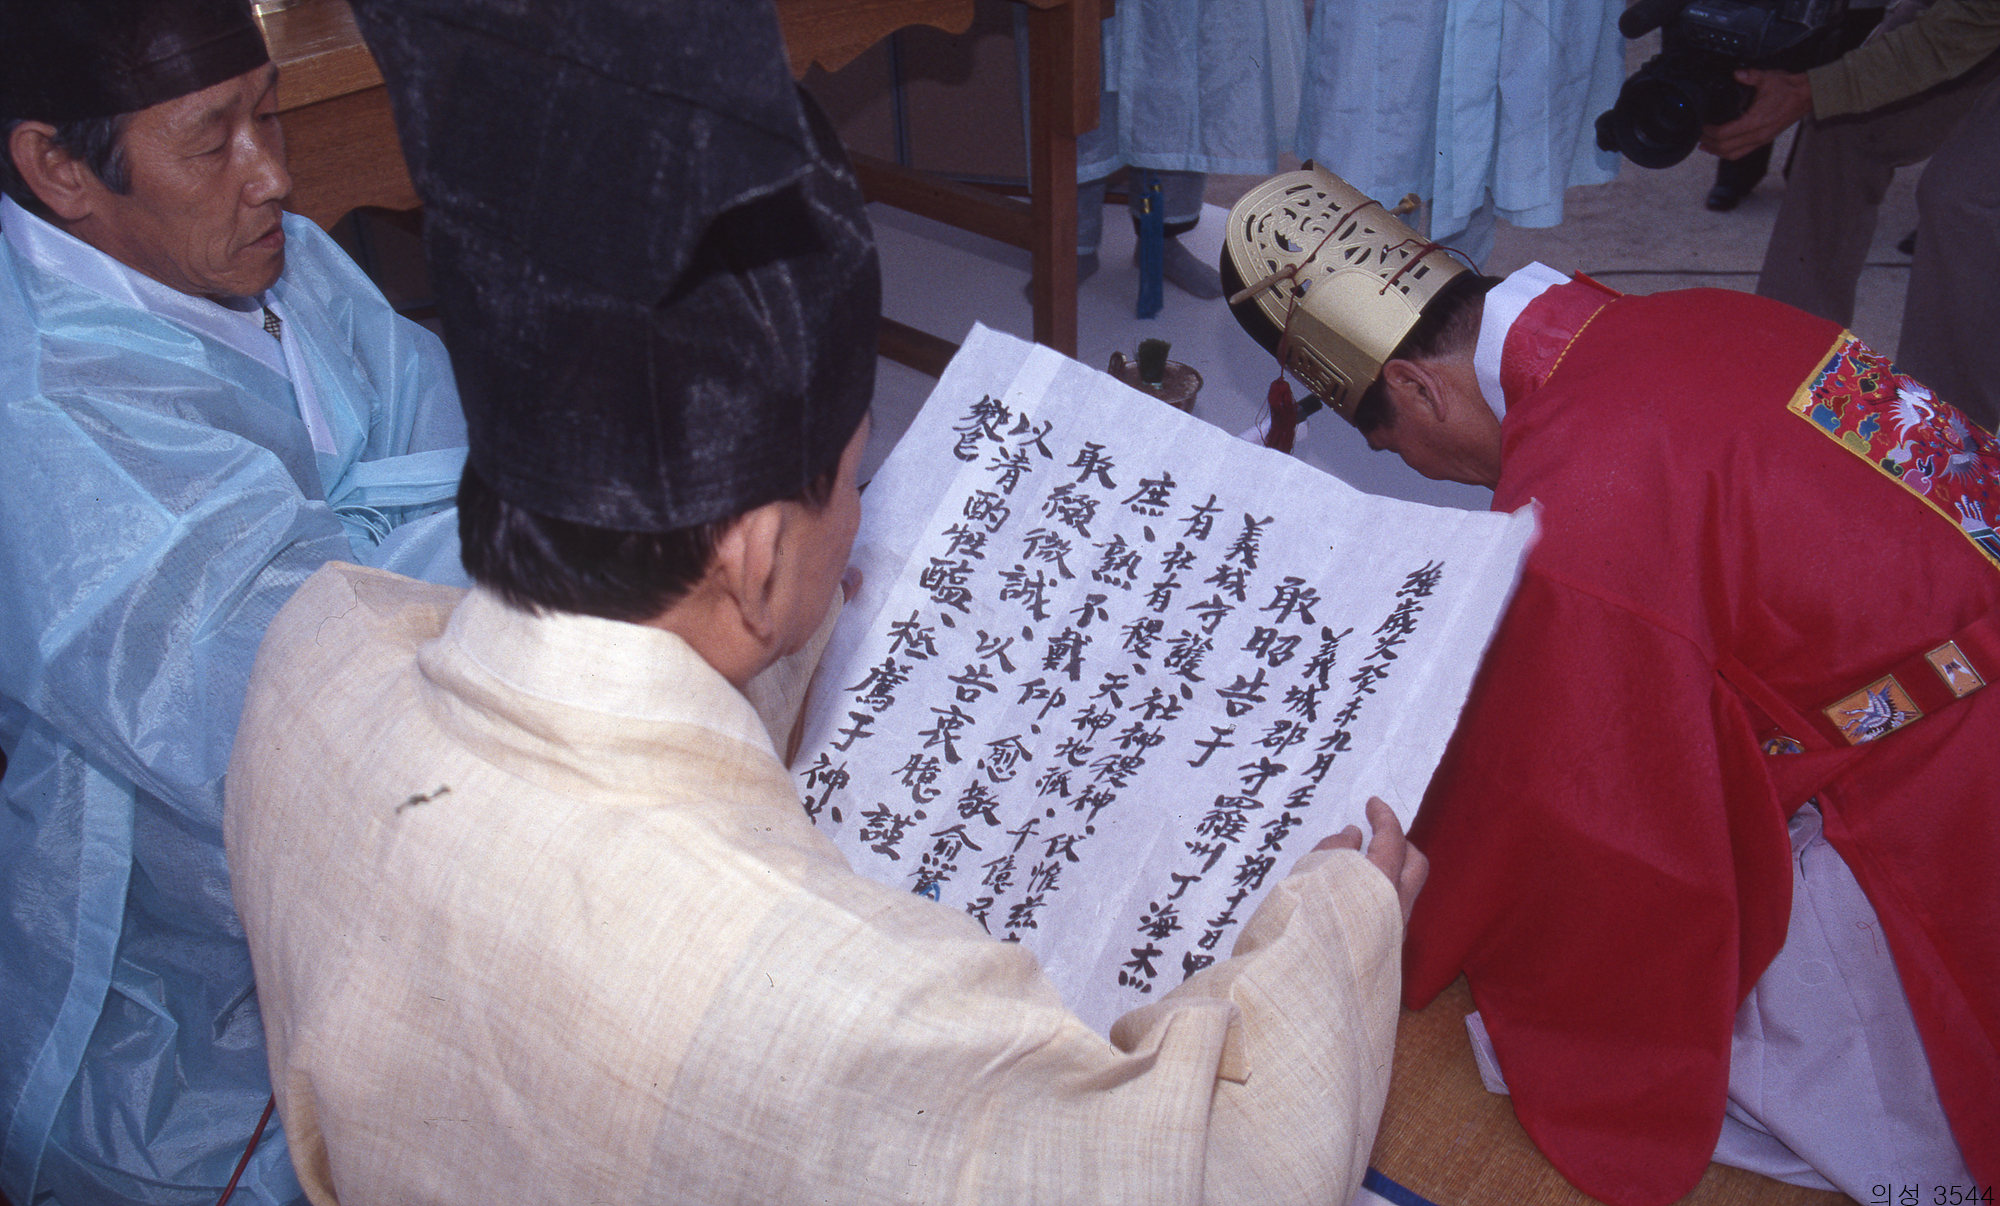 維歲次癸未九月壬寅朔十五日甲
義城郡守羅州丁海杰
敢昭告于
義城守護、社神稷神、伏惟茲
有社有稷、天神地祇、千億民
庶、孰不戴仰、愈敬愈篤
敢綴微誠、以告衷臆、謹
以清酌牲醯、柢薦于神
饗
의성 3544
SONY